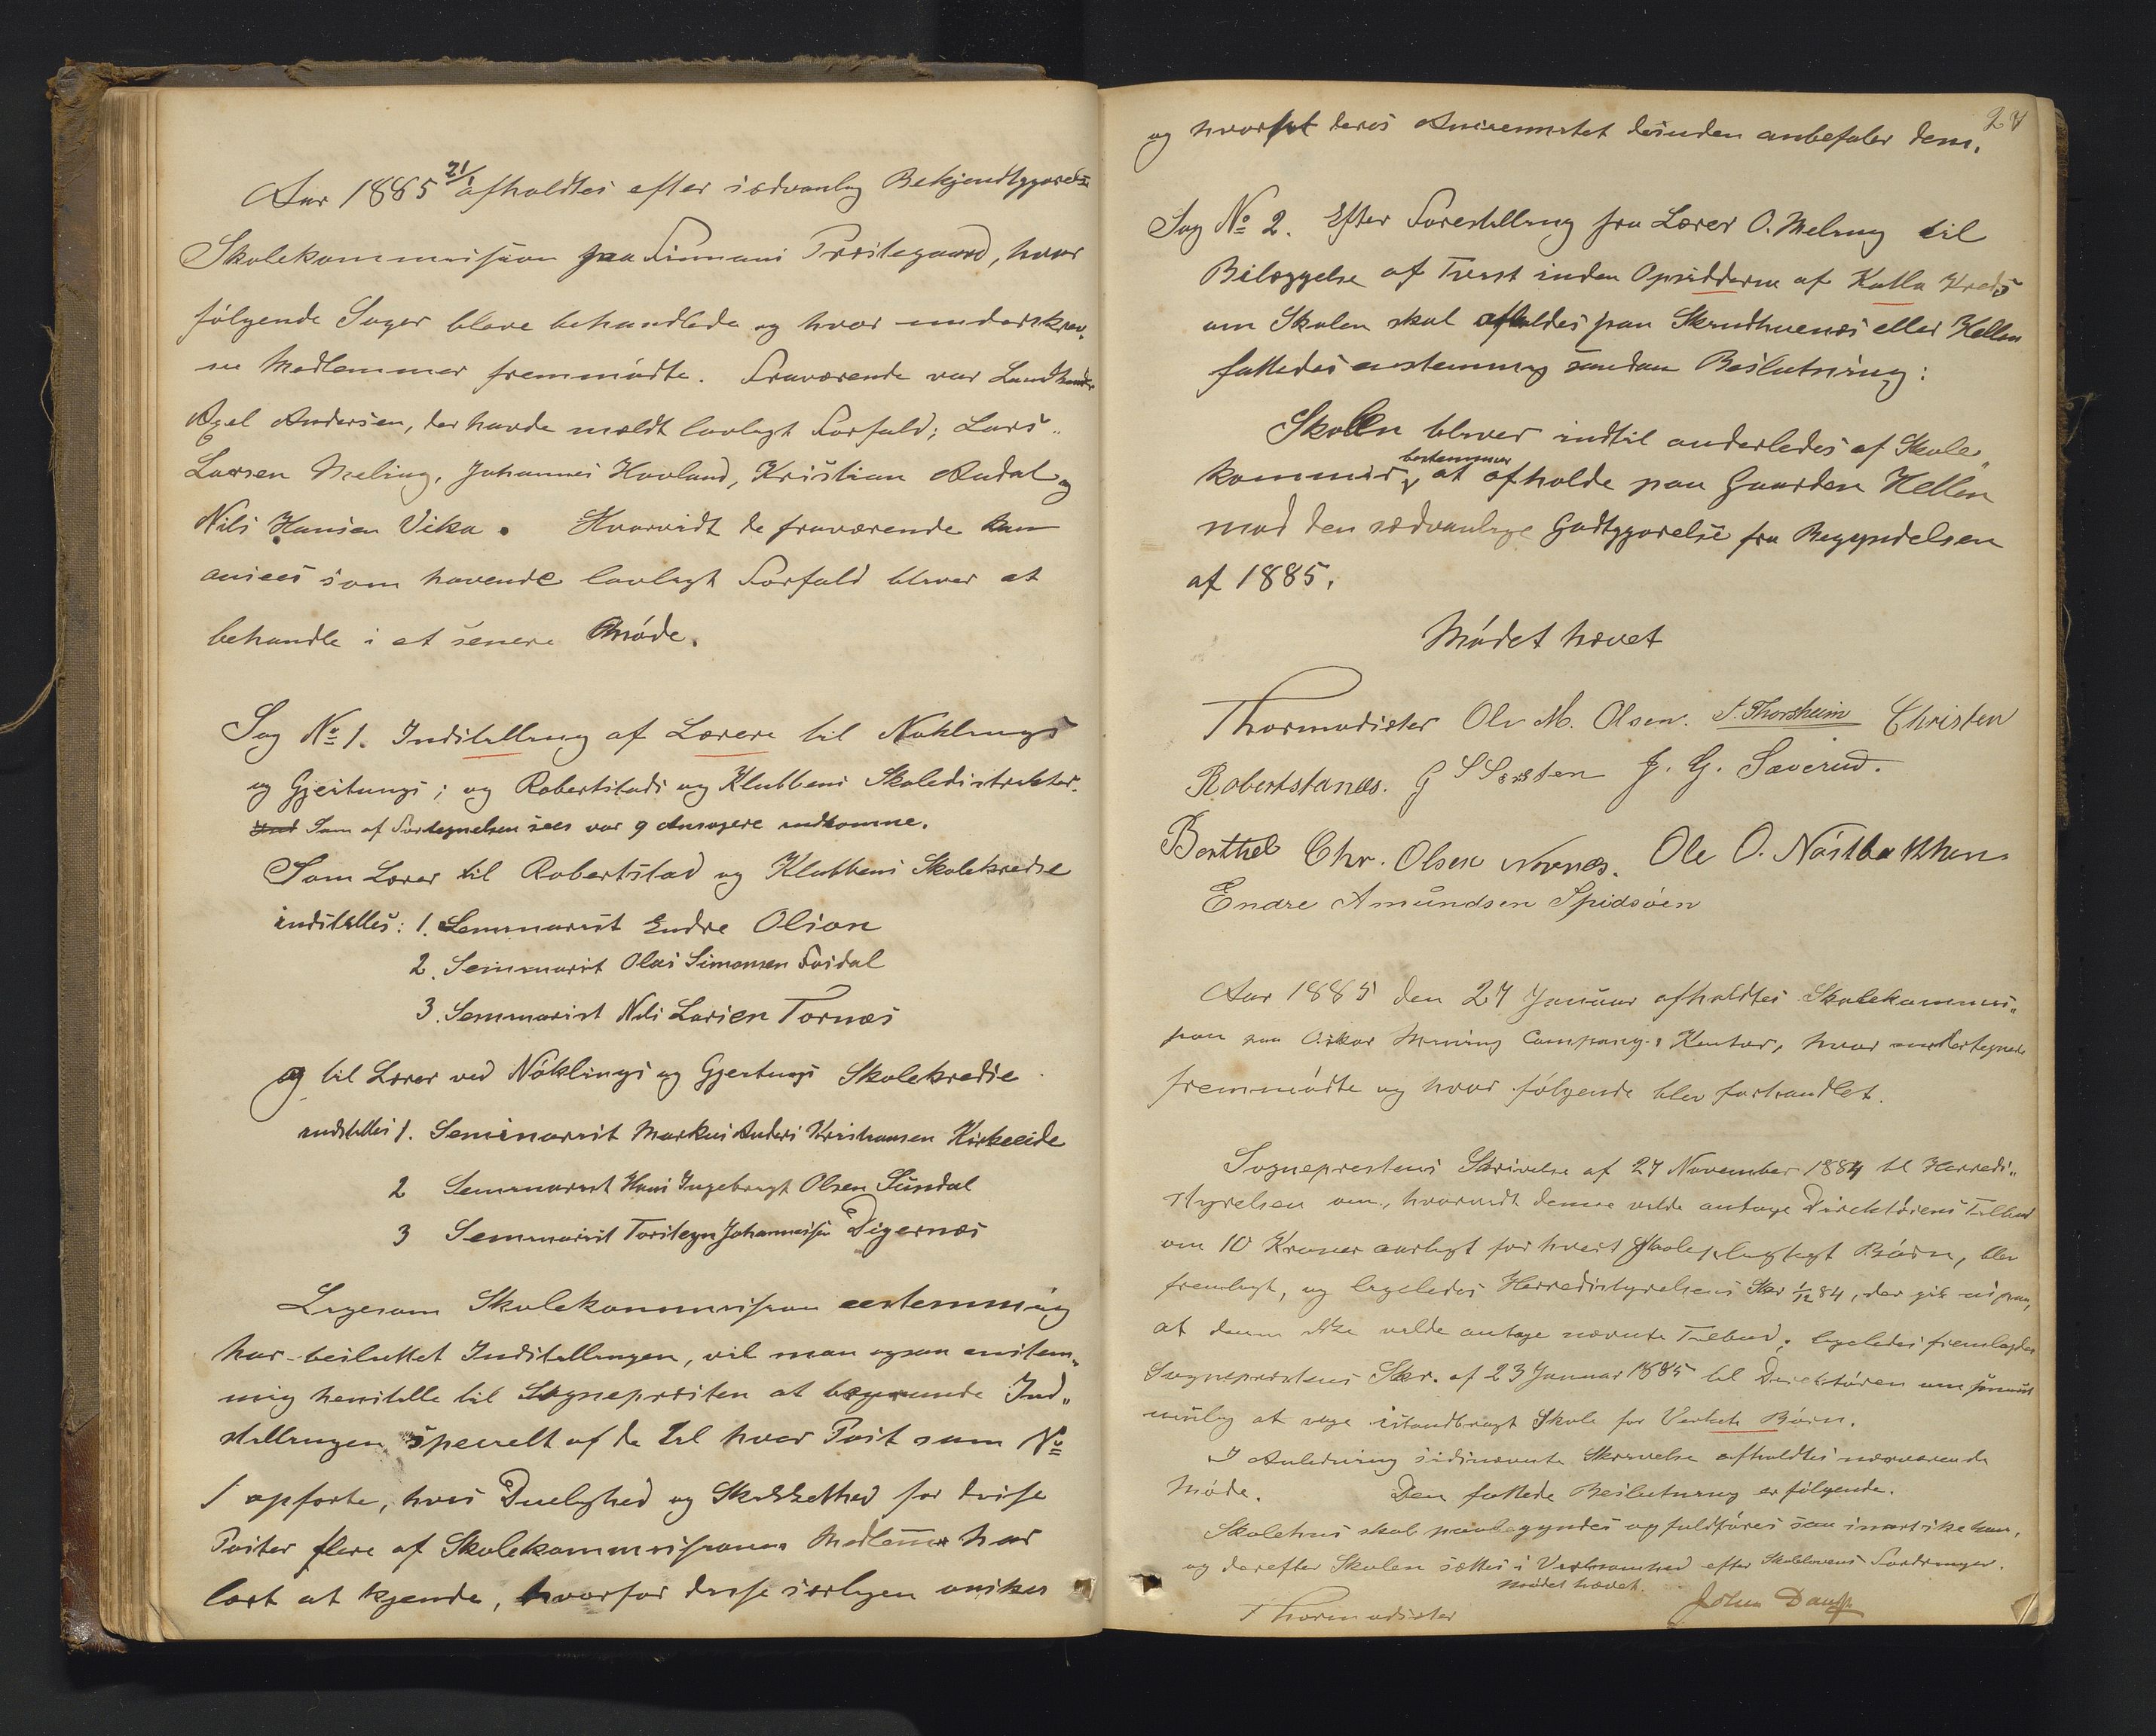 Aar 1885 21/1 afholdtes efter sædvanlig Bekjendtgjørelse
Skolekommission paa Finnaas Præstegaard, hvor
følgende Sager bleve behandlede og hvor underskrev„
ne Medlemmer fremmødte. Fraværende var Landhandler
Axel Andersen, der havde meldt lovligt Forfald; Lars
Larsen Meling, Johannes Hovland, Kristian Aadal og
Nils Hansen Vika. Hvorvidt de fraværende kan
ansees som havende lovligt Forfald bliver at
behandle i et senere Møde.
Sag No 1. Indstilling af Lærere til Nøklings
og Gjeitungs; og Robertstads og Klubbens Skoledistrikter.
Som af Fortegnelsen sees var 9 Ansøgere indkomne.
Som Lærer til Robertstad og Klubbens Skolekredse
indstilles: 1. Seminarist Endre Olson
2. Seminarist Olai Simonsen
3. Seminarist Nils Larsen Tornæs
og til Lærer ved Nøklings og Gjeitungs Skolekredse
indstilles 1. Seminarist Markus Anders Kristiansen Kirkeeide
2 Seminarist Hans Ingebrigt Olsen Sundal
3 Seminarist Torsteyn Johannessen Digernæs
Ligesom Skolekommission eenstemmig
har besluttet Indstillingen, vil man ogsaa enstem„
mig henstille til Sognepræsten at begrunde Ind„
stillingen specielt af de til hver Post som No
1 opførte, hvis Duelighed og Skikkethed for disse
Poster flere af Skolekommissionens Medlemmer har
lært at kjende, hvorfor disse særligen ønskes
24
og hvorfor deres desuden anbefaler dem.
Sag No 2. Efter Forestilling fra Lærer O. Meling til
Bilæggelse af Tvist inden Opsidderne af Katla Kreds
om Skolen skal afholdes paa Skrudhuenæs eller Hellen
fattedes enstemmig saadan Beslutning:
Skolen bliver indtil anderledes af Skole„
kommis. bestemmes at afholde paa Gaarden Hellen
mod den sædvanlige Godtgjørelse fra Begyndelsen
af 1885.
Mødet hævet
Thormodsæter Ole M. Olsen. T. Thorsheim Christen
Robertstanæs. G S Sørsten J. G. Sæverud.
Berthel Chr. Olsen Nornæs. Ole O. Nåstbakken
Endre Amundsen Spidsøen
Aar 1885 den 27 Januar afholdtes Skolekommis„
sion paa Oskar Mining Company's Kontor, hvor undertegnede
fremmødte og hvor følgende blev forhandlet.
Sogneprestens Skrivelse af 27 November 1884 til Herreds„
styrelsen om, hvorvidt denne vilde antage Direktørens Tilbud
om 10 Kroner aarligt for hvert skolepligtigt Barn, blev
fremlagt, og ligeledes Herredsstyrelsens Skr 1/12 84, der gik ud paa,
at denne ikke vilde antage nævnte Tilbud; ligeledes fremlagdes
Sogneprestens Skr. af 23 Januar 1885 til Direktøren om snarest
mulig at faa istandbragt Skole for Verkets Børn.
I Anledning sidstnævnte Skrivelse afholdtes nærværende
Møde. Den fattede Beslutning er følgende.
Skolehus skal paabegyndes og fuldføres saa snart ske kan,
og derefter Skolen sættes i Virksomhed efter Skolelovens Fordringer.
Mødet hævet.
Thormodsæter John Dauff